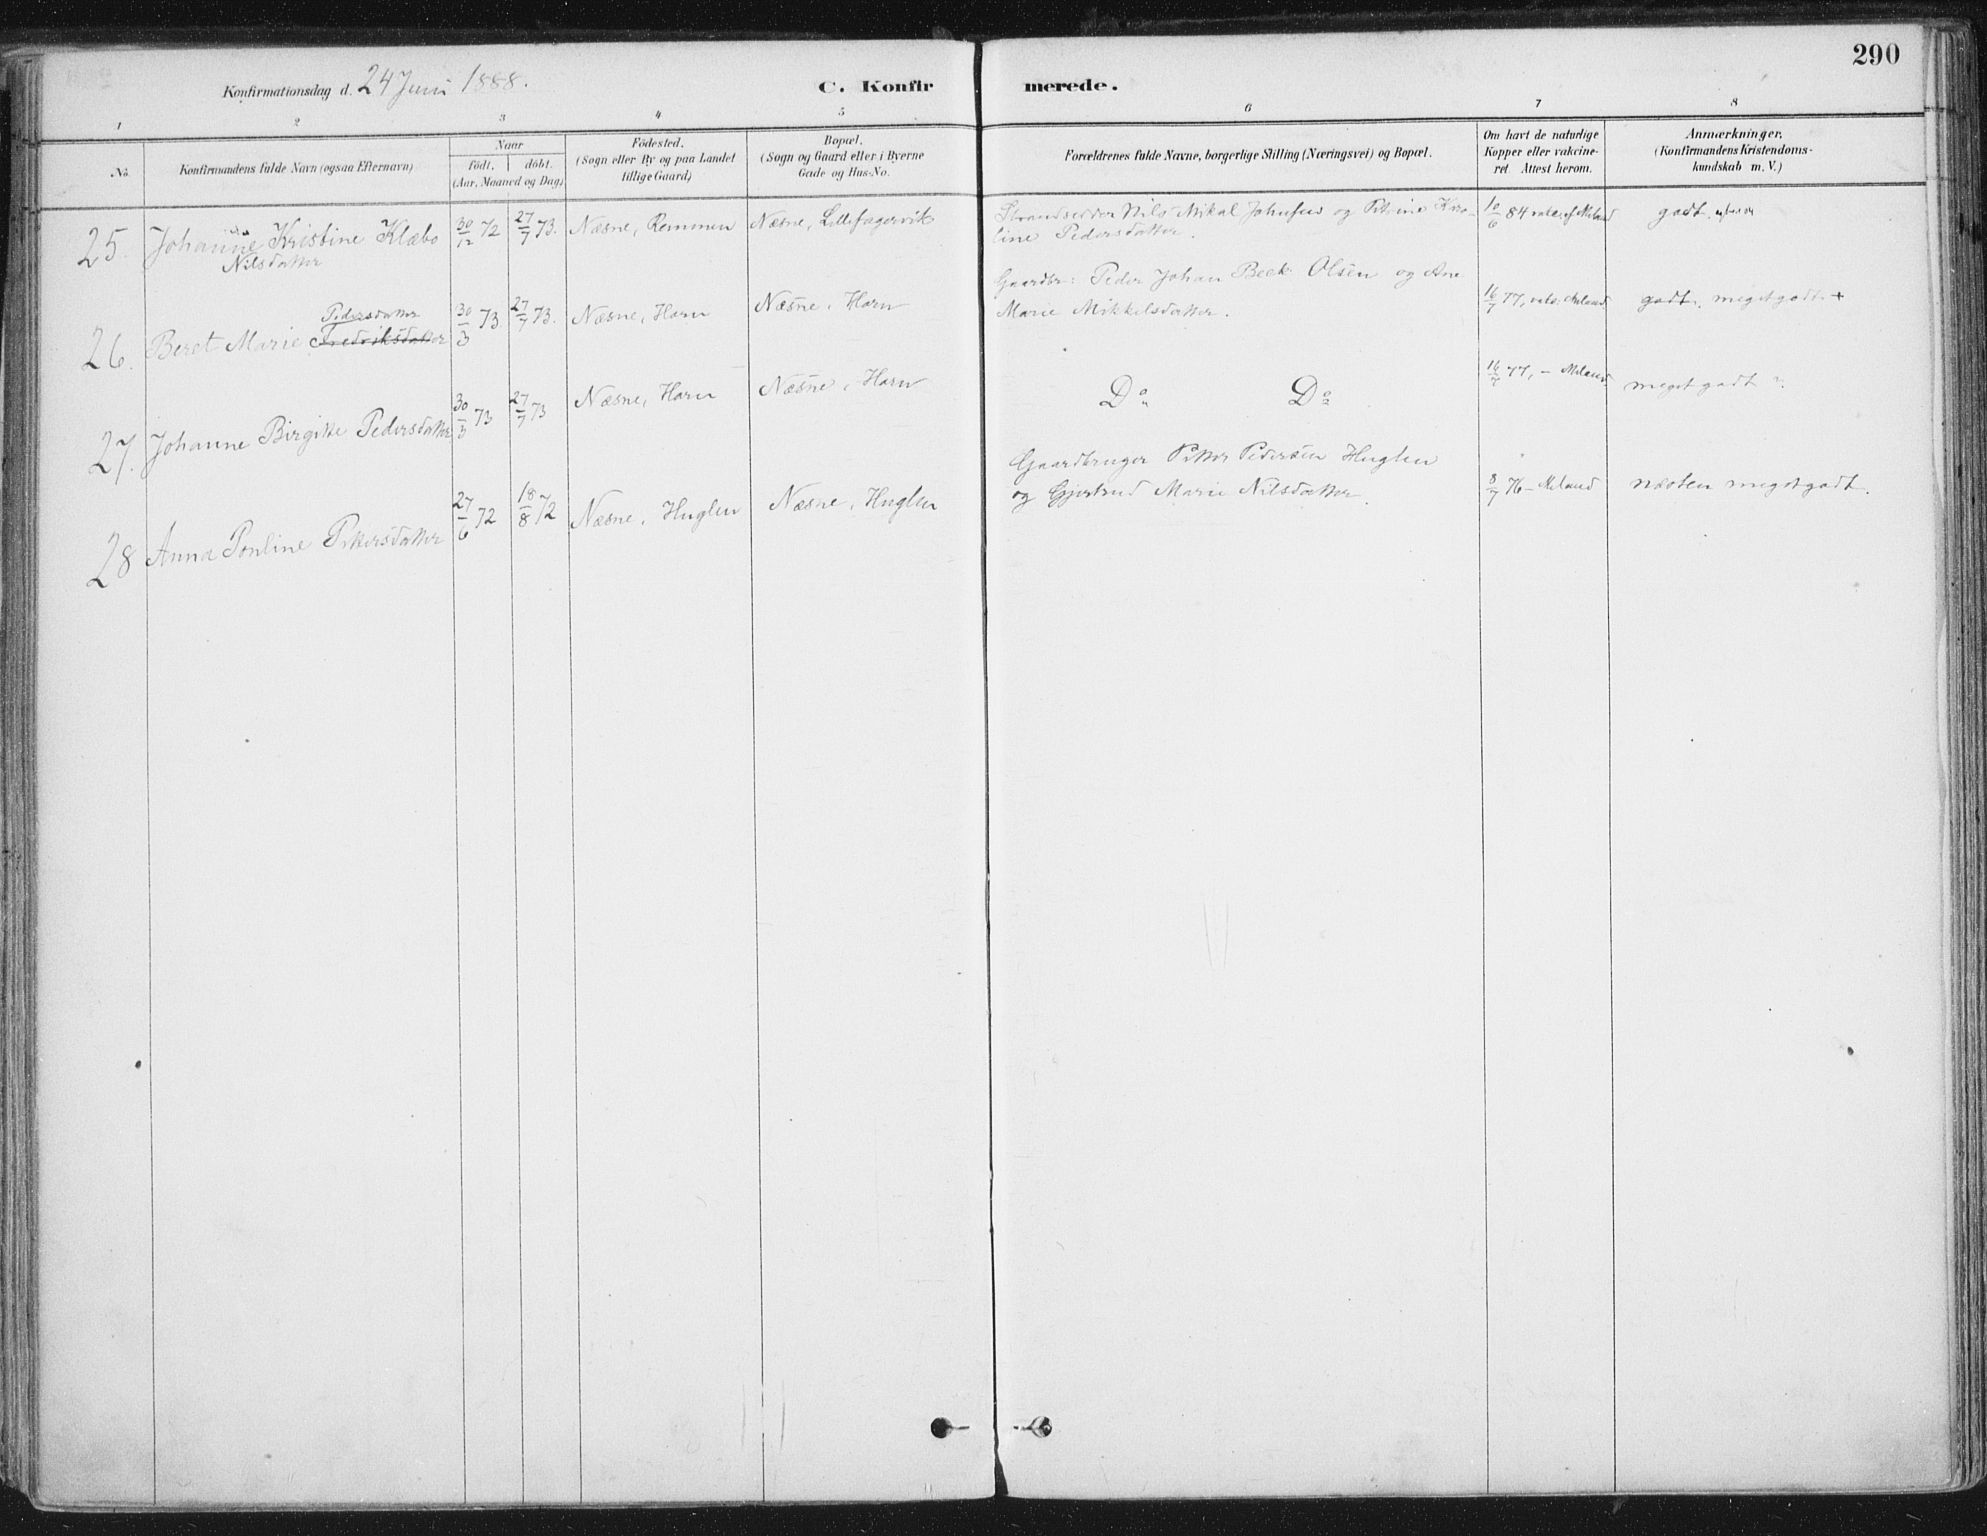 290
Konfirmationsdag d. 24 Juni 1888.
C. Konfirmerede.
1 2 3 4 5 6 7 8
No.
Konfirmandens fulde Navn (ogsaa Efternavn)
Naar
födt. döbt.
(Aar, Maaned og Dag)
Födested.
(Sogn eller By og paa Landet
tillige Gaard)
Bopæl.
(Sogn og Gaard eller i Byerne
Gade og Hus-No.
Forældrenes fulde Navne, borgerlige Stilling (Næringsvei) og Bopæl.
Om havt de naturlige
Kopper eller vakcine-
ret. Attest herom.
Anmærkninger,
(Konfirmandens Kristendoms-
kundskab m. V.)
25. Johanne Kristine Klæbo 30/12 72 27/7 73. Næsne, Remmen Næsne, Lillefagervik Strandsidder Nils Mikal Johnsen og Petrine Karo- 10/6 84 vakc. af Meland godt
Nilsdatter
line Pedersdatter.
Pedersdatter
26. Beret Marie Fredriksdatter 30/3 73 27/7 73. Næsne, Horn Næsne, Horn Gaardbr: Peder Johan Beck Olsen og Ane 16/7 77, vakc. Meland godt. meget godt +
Marie Mikkelsdatter.
27. Johanne Birgitte Pedersdatter 30/3 73 27/7 73 Næsne, Horn Næsne, Horn Do Do 16/7 77, - Meland meget godt ?.
28 Anna Pouline Pettersdatter 27/6 72 18/8 72 Næsne, Huglen Næsne, Huglen Gaardbruger Petter Pedersen Huglen 8/7 76 - Meland næsten meget godt.
og Gjertrud Marie Nilsdatter.